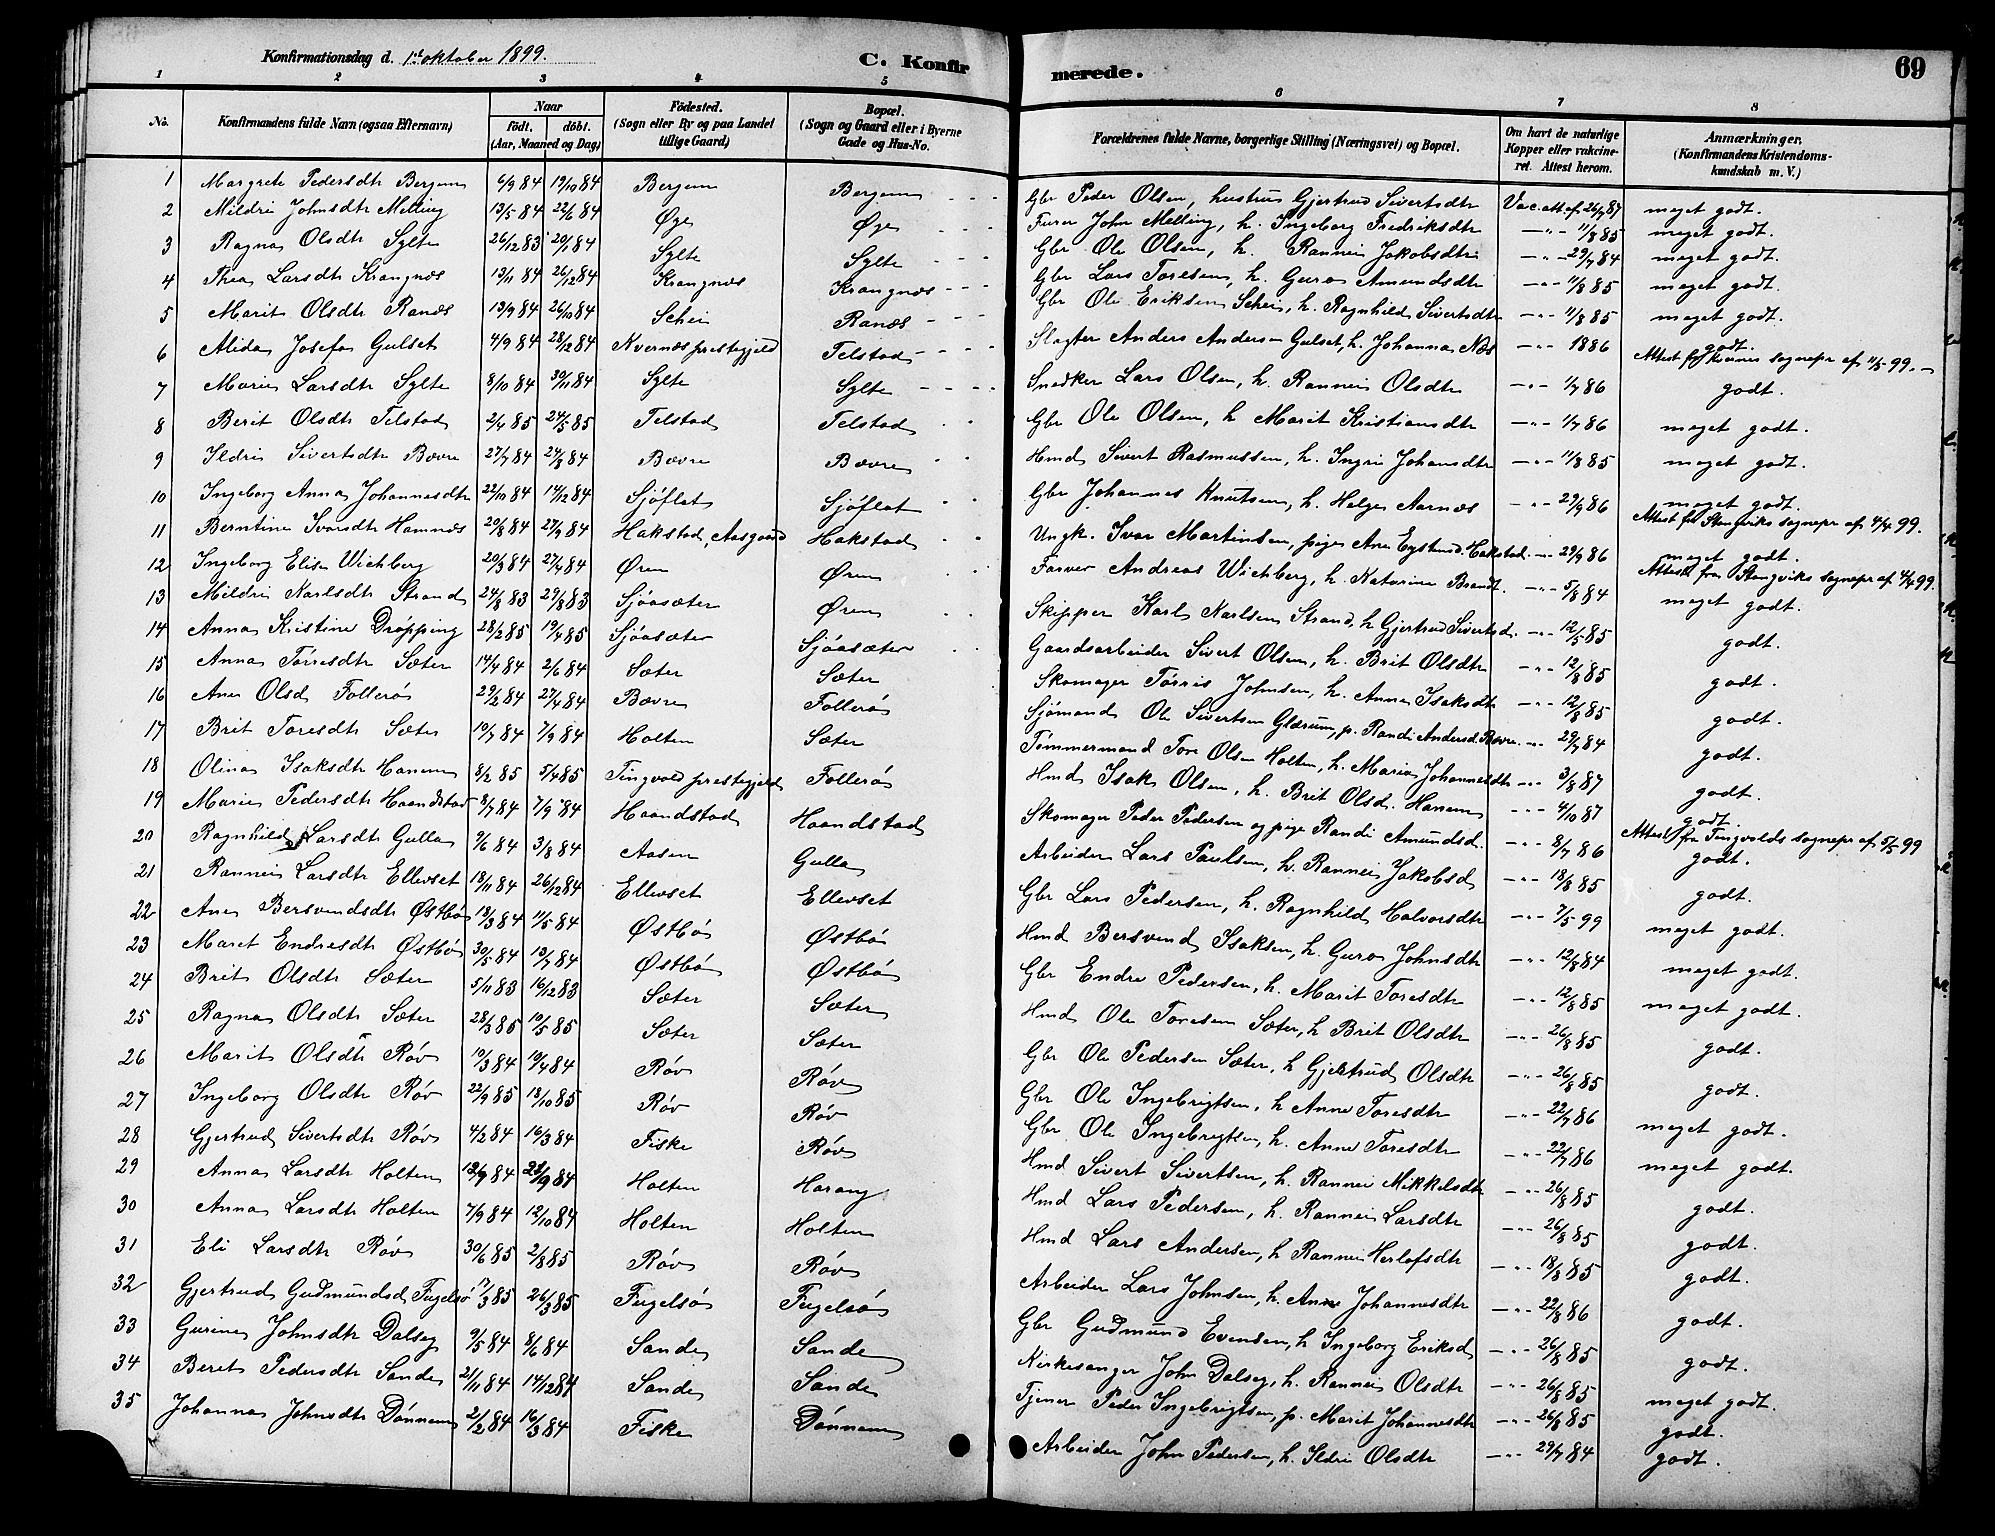 Konfirmationsdag d. 1ste oktober 1899. C. Konfirmerede. 69
1 2 3 4 5 6 7 8
No. Konfirmandens fulde Navn (ogsaa Efternavn) Naar födt. döbt. (Aar, Maaned og Dag) Födested. (Sogn eller By og paa Landet tillige Gaard) Bopæl. (Sogn og Gaard eller i Byerne Gade og Hus-No. Forældrenes fulde Navne, borgerlige Stilling (Næringsvei) og Bopæl. Om havt de naturlige Kopper eller vakcineret. Attest herom. Anmærkninger. (Konfirmandens Kristendomskundskab m. V.)
1 Margrete Pedersdtr Bergem 6/9 84 19/10 84 Bergem Bergem Gbr Peder Olsen, hustru Gjertrud Sivertsdtr Vac. att. af 26/7 87 meget godt.
2 Mildri Johnsdtr Melling 13/5 84 22/6 84 Øye Øye Furer John Melling, h. Ingeborg Fredriksdtr —"- 11/8 85 meget godt.
3 Ragna Olsdtr Sylte 26/12 83 20/1 84 Sylte Sylte Gbr Ole Olsen, h. Rannei Jakobsdtr —"- 29/7 84 meget godt.
4 Thea Larsdtr Krangnæs 13/11 84 26/12 84 Krangnæs Krangnæs Gbr Lars Toresen, h. Guro Amundsdtr —"- 11/8 85 meget godt.
5 Marit Olsdtr Ranæs 13/9 84 26/10 84 Schei Ranæs Gbr Ole Eriksen Schei, h. Ragnhild Sivertsdtr —"- 11/8 85 meget godt.
6 Alida Josefa Gulset 4/9 84 28/12 84 Kvernæs prestegjeld Telstad Slagter Anders Andersen Gulset, h. Johanna Næs —"- 1886 godt. Attest fra Kvernes sognepr af 11/5 99.
7 Marie Larsdtr Sylte 8/10 84 30/11 84 Sylte Sylte Snedker Lars Olsen, h. Rannei Olsdtr —"- 1/7 86 godt.
8 Berit Olsdtr Telstad 2/4 85 24/5 85 Telstad Telstad Gbr Ole Olsen, h Marit Kristiansdtr —"- 1/7 86 meget godt.
9 Ildri Sivertsdtr Bævre 27/7 84 24/8 84 Bævre Bævre Hmd Sivert Rasmussen, h. Ingri Johansdtr —"- 11/8 85 meget godt.
10 Ingeborg Anna Johannesdtr 22/10 84 14/12 84 Sjøflat Sjøflat Gbr Johannes Knutsen, h. Helga Aarnæs —"- 29/9 86 meget godt.
11 Berntine Ivarsdtr Hamnæs 20/8 84 27/9 84 Hakstad, Aasgaard Hakstad Ungk. Ivar Martinsen, pige Ane Eystensd. Hakstad —"- 29/9 86 Attest fra Stangviks sognepr af 4/4 99. meget godt.
12 Ingeborg Elise Wichberg 20/3 84 27/4 84 Øren Øren Farver Andreas Wichberg, h. Katarina Brandt. —"- 5/8 84 Attest fra Stangviks sognepr af 4/4 99. meget godt.
13 Mildri Karlsdtr Strand 24/8 83 29/8 83 Sjøasæter Øren Skipper Karl Karlsen Strand, h Gjertrud Sivertsd. —"- 12/5 85 godt.
14 Anna Kristine Drøpping 28/2 85 19/4 85 Sjøasæter Sjøasæter Gaardsarbeider Sivert Olsen, h. Brit Olsdtr —"- 12/8 85 godt.
15 Anna Tørresdtr Sæter 14/4 84 2/6 84 Sæter Sæter Skomager Tørris Johnsen, h. Anne Isaksdtr —"- 12/8 85 godt.
16 Ane Olsd Follerø 29/2 84 27/4 84 Bævre Follerø Sjømand Ole Sivertsen Glærum, p. Randi Andersd. Bævre. —"- 29/7 84 godt.
17 Brit Toresdtr Sæter 10/7 84 7/9 84 Holten Sæter Tømmermand Tore Olsen Holten, h. Marie Johannesdtr —"- 3/8 87 godt.
18 Olina Isaksdtr Hanem 8/2 85 5/4 85 Tingvold prestegjeld Follerø Hmd Isak Olsen, h. Brit Olsd. Hanem —"- 4/10 87 godt. Attest fra Tingvolds sognepr af 5/5 99
19 Marie Pedersdtr Haandstad 8/7 84 7/9 84 Haandstad Haandstad Skomager Peder Pedersen og pige Randi Amundsd. —"- 8/7 86 godt.
20 Ragnhild Larsdtr Gulla 9/6 84 3/8 84 Aasen Gulla Arbeider Lars Paulsen, h. Rannei Jakobsd —"- 18/8 85 godt.
21 Rannei Larsdtr Ellevset 18/11 84 26/12 84 Ellevset Ellevset Gbr Lars Pedersen, h. Ragnhild Halvorsdtr —"- 7/5 99 meget godt.
22 Ane Bersvendsdtr Østbø 18/3 84 11/5 84 Østbø Østbø Hmd Bersvend Isaksen, h. Guro Johnsdtr —"- 12/8 84 meget godt.
23 Maret Endresdtr Østbø 30/5 84 13/7 84 Østbø Østbø Gbr Endre Pedersen, h. Marit Toresdtr —"- 12/8 85 meget godt.
24 Brit Olsdtr Sæter 5/11 83 16/12 83 Sæter Sæter Hmd Ole Toresen Sæter, h Brit Olsdtr —"- 26/8 85 godt.
25 Ragna Olsdtr Sæter 28/3 85 10/5 85 Sæter Sæter Gbr Ole Pedersen Sæter, h Gjertrud Olsdtr —"- 26/8 85 godt.
26 Marit Olsdtr Røv 10/3 84 10/4 84 Røv Røv Gbr Ole Ingebrigtsen, h Anne Toresdtr —"- 22/7 86 meget godt.
27 Ingeborg Olsdtr Røv 22/9 85 18/10 85 Røv Røv Gbr Ole Ingebrigtsen, h. Anne Toresdtr —"- 22/7 86 meget godt.
28 Gjertrud Sivertsdtr Røv 4/2 84 16/3 84 Fiske Røv Hmd Sivert Sivertsen, h. Rannei Mikkelsdtr —"- 26/8 85 godt.
29 Anna Larsdtr Holten 13/9 84 21/9 84 Holten Harang Hmd Lars Pedersen, h. Rannei Larsdtr —"- 26/8 85 godt.
30 Anna Larsdtr Holten 7/9 84 12/10 84 Holten Holten Hmd Lars Andersen, h Rannei Herlofsdtr —"- 18/8 85 godt.
31 Eli Larsdtr Røv 30/6 85 2/8 85 Røv Røv Arbeider Lars Johnsen, h. Anne Johannesdtr —"- 22/8 86 godt.
32 Gjertrud Gudmundsd Fugelsø 17/3 85 26/3 85 Fugelsø Fugelsø Gbr Gudmund Evensen, h Ingeborg Eriksd —"- 26/8 85 godt.
33 Gurine Johnsdtr Dalseg 9/5 84 8/6 84 Sande Sande Kirkesanger John Dalseg, h. Rannei Olsdtr —"- 26/8 85 meget godt.
34 Beret Pedersdtr Sande 21/11 84 14/12 84 Sande Sande Tjener Peder Ingebrigtsen, p. Marit Johannesdtr —"- 26/8 85 godt.
35 Johanna Johnsdtr Dønnem 2/2 84 16/3 84 Fiske Dønnem Arbeider John Pedersen, h. Ildri Olsdtr —"- 29/7 84 godt.